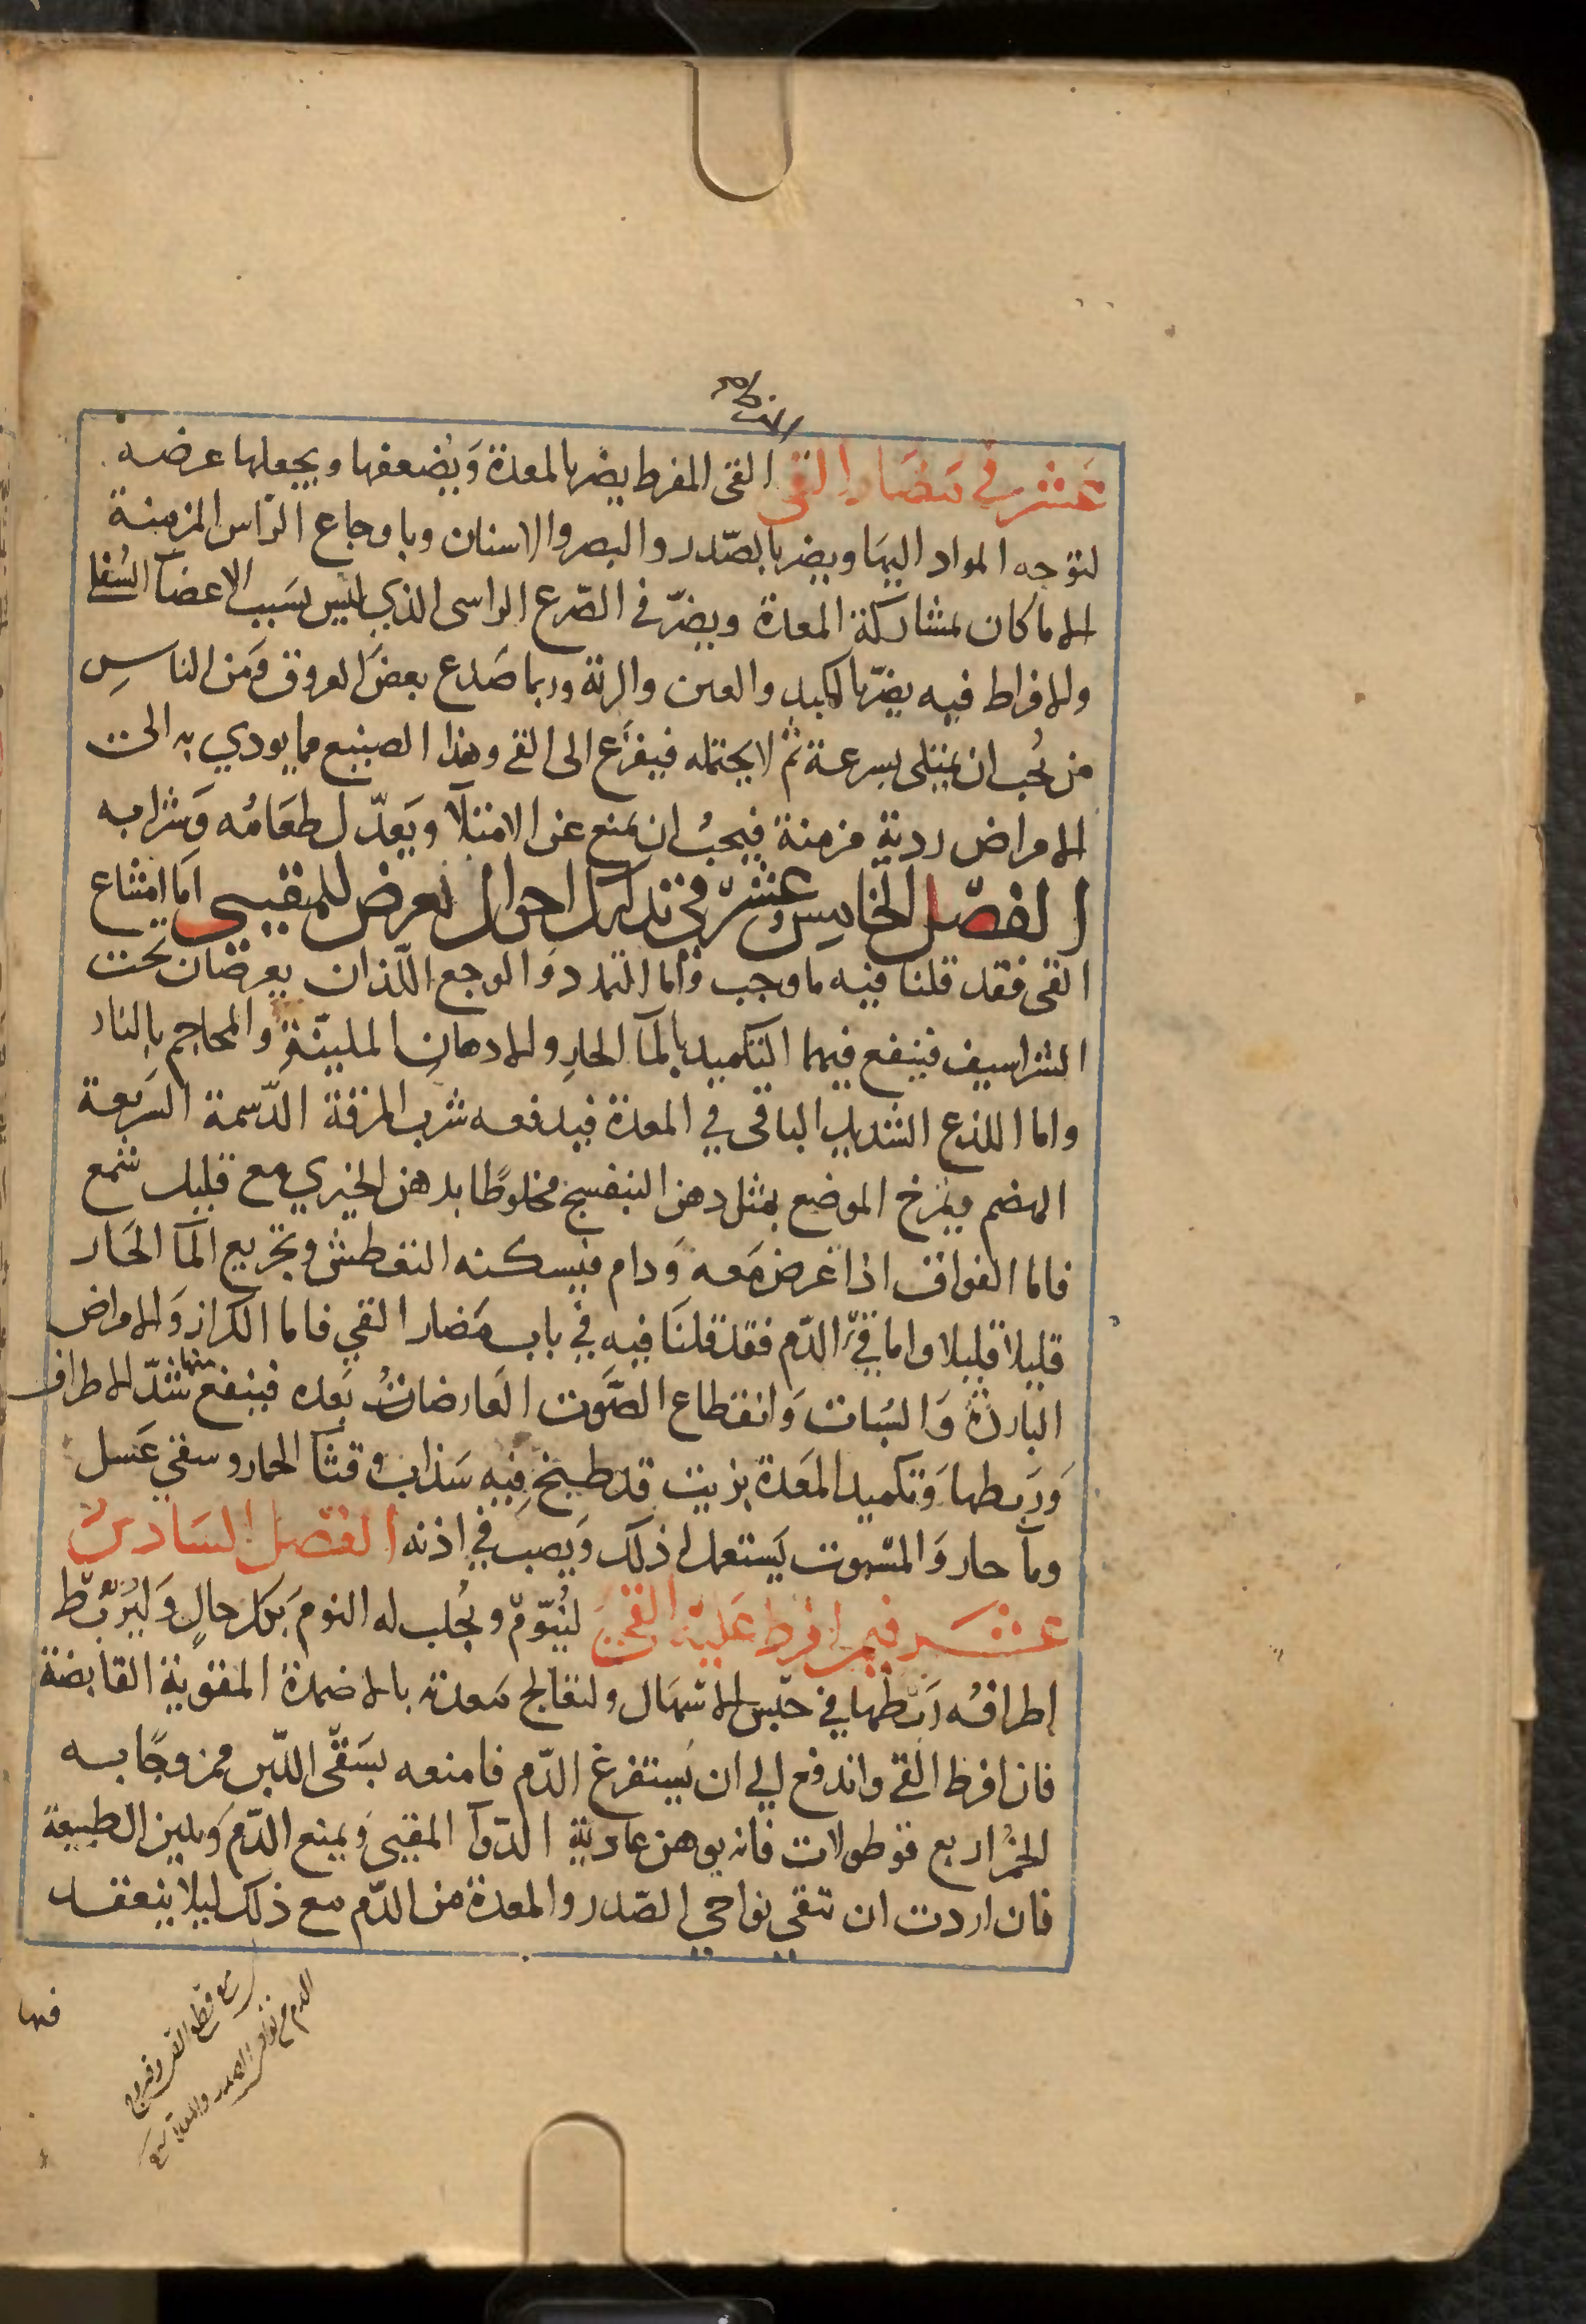 عشر في مضار القى القى المفرط يضر بالمعدة وَيُضعفها ويجعلها عرضه
لتوجه المواد اليها ويضر بالصّدر والبصر والاسنان وباوجاع الرّاس المزمنة
الا ما كان بمشاركة المعدة ويضرّ في الصّرع الراسى الذي ليس بسَبب الاعضآ السُفلى
والافراط فيه يضرّ بالكبد والعين والرئة وربما صَدع بعضَ العروق وَمن الناسِ
من يُحب ان يمتلى بسرعة ثمّ لا يحتمله فيفزَع الى القى وهذا الصنيع مما يودي به الى
الامراض ردية مزمنة فيجبُ ان يمنع عن الامتلآ ويَعدّل طعَامُه وَشرابه
الفصّل الخامِس عشر في تدارك احوال تعرض للمتقيى اما امتناع
القى فقد قلنا فيه ما وجب وَاما التمدد وَالوجع اللّذان يعرضان تحت
الشراسيف فينفع فيهما التكميد بالمآ الحارِ والادهانِ الملينّةِ والمحاجم بالنار
واما اللذع الشديد الباقى في المعدة فيدفعه شرب المرقة الدّسمة السَريعة
الهضم ويمرَخ الموضع بمثل دهن البنفسج مخلوطًا بدهن الخيري مع قليل شمع
فاما الفواق اذا عَرض مَعه وَدام فيسكنه التعطيش وتجريع المآ الحَار
قليلا قليلا واما قئ الدّم فقد قلنَا فيه في باب مَضار القي فاما الكزاز وَالامراض
البارده وَالسُبات وَانقطاع الصَّوت العَارضاتُ بَعده فينفع منها شدّ الاطراف
وَربطها وَتكميد المَعدة بزيت قد طبخ فِيه سَذاب وقثآ الحمار وسقي عَسل
ومآ حار وَالمسبوت يَستعمل ذلك وَيصب في اذنه الفصل السَادس
عشر فيمن افرط عَليه القىَ ليُنوّم ويُجلب له النوم بَكل حالٍ وَليُربّط
اطرافُه رَبطها في حبس الاسهال ولتعَالج مَعدته بالاضمدة المقوية القابضة
فان افرط القے واندفع الي ان يستفرغ الدّم فامنعه بسَقى اللّبن ممزوجًا به
الخمرُ اربع قوطولات فانه يوهن عادية الدّوآ المقيى وَيمنع الدّم وَيلين الطبيعة
فان اردت ان تنقى نواحي الصّدر والمعدة من الدّم مع ذلك ليلا ينعقد
فيها